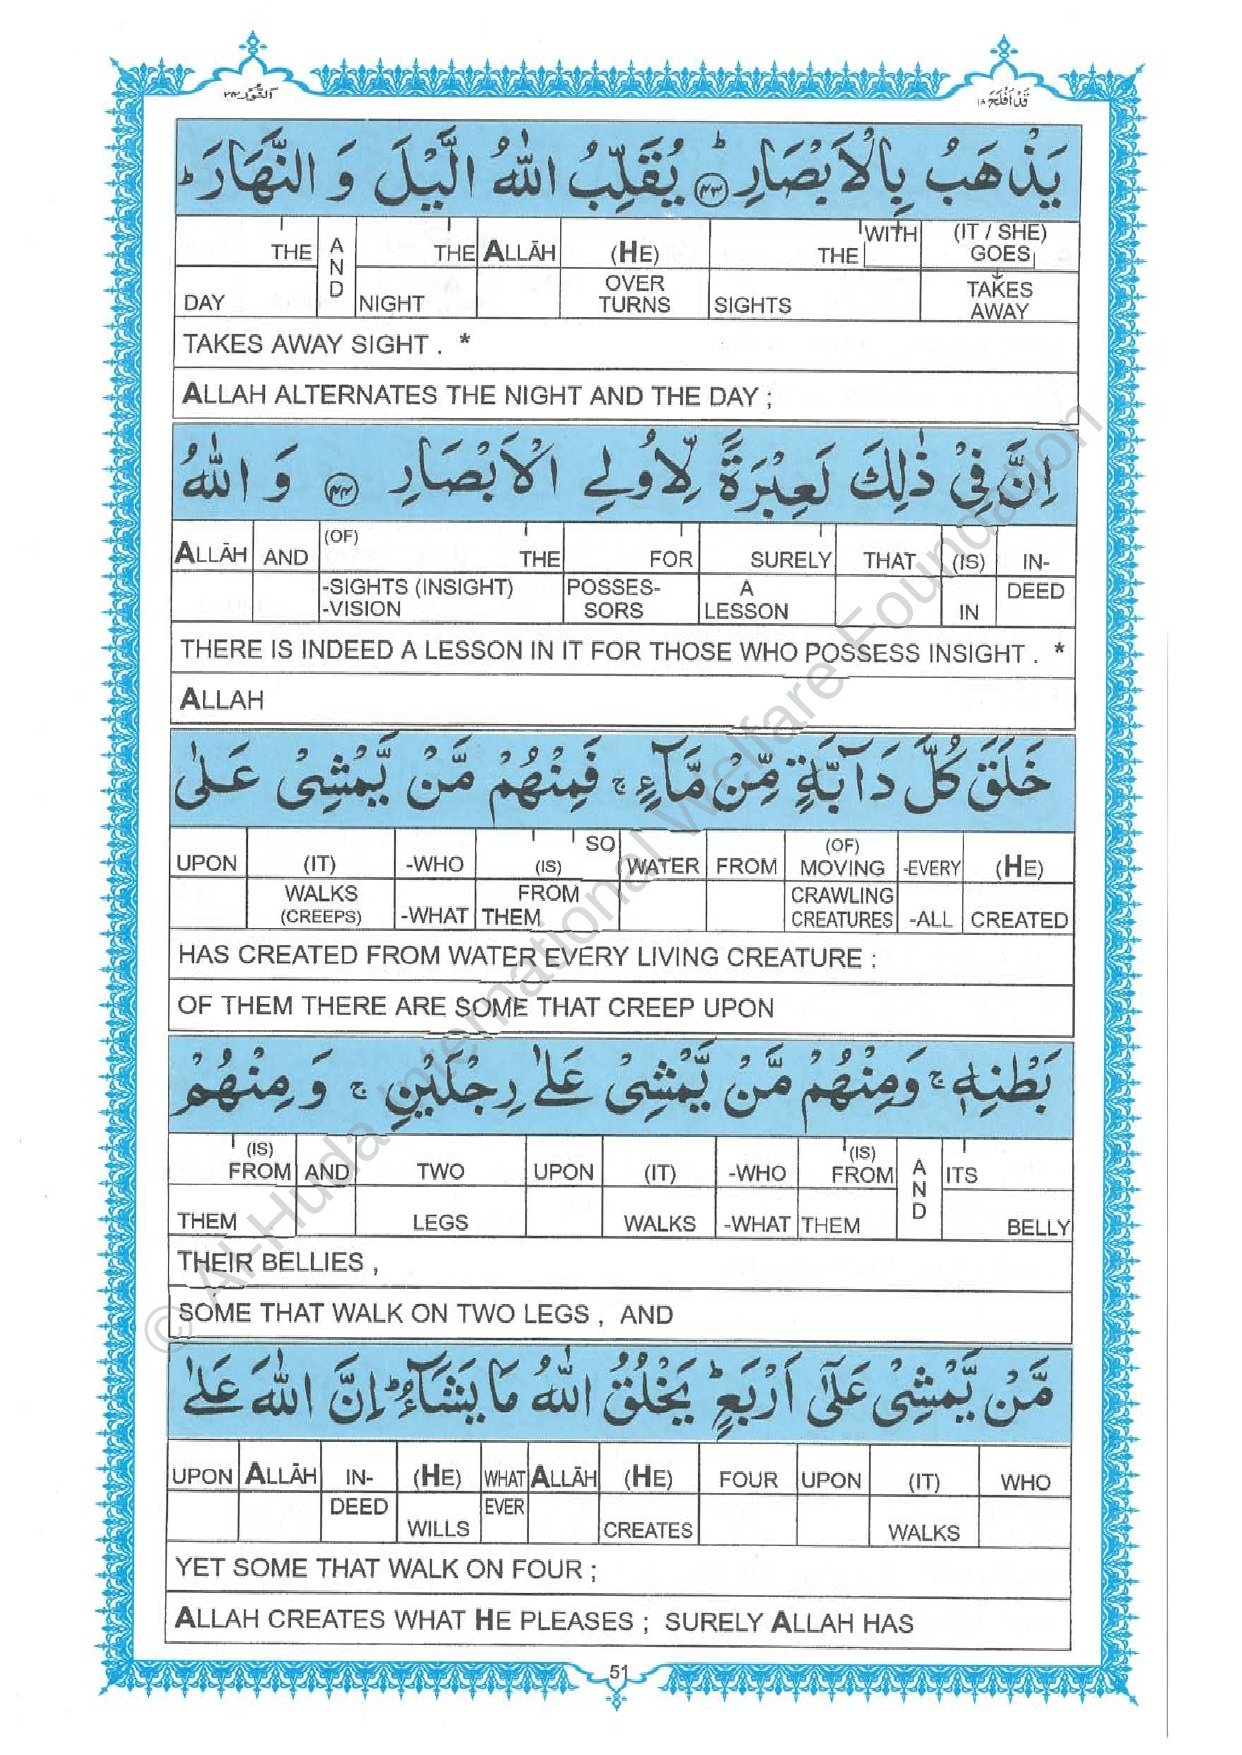 قَدْ اَفْلَحَ ١٨
اَلنُّوْر ٢٤
يَذْهَبُ بِالْاَبْصَارِ ؕ ﴿۴۳﴾ يُقَلِّبُ اللّٰهُ الَّيْلَ وَ النَّهَارَ ؕ
THE AND THE ALLĀH (HE) THE WITH (IT / SHE) GOES
DAY NIGHT OVER TURNS SIGHTS TAKES AWAY
TAKES AWAY SIGHT . *
ALLAH ALTERNATES THE NIGHT AND THE DAY ;
اِنَّ فِيْ ذٰلِكَ لَعِبْرَةً لِّاُولِي الْاَبْصَارِ ﴿۴۴﴾ وَ اللّٰهُ
ALLĀH AND (OF) THE FOR SURELY THAT (IS) IN-
-SIGHTS (INSIGHT) -VISION POSSES- SORS A LESSON IN DEED
THERE IS INDEED A LESSON IN IT FOR THOSE WHO POSSESS INSIGHT . *
ALLAH
خَلَقَ كُلَّ دَآبَّةٍ مِّنْ مَّآءٍ ۚ فَمِنْهُمْ مَّنْ يَّمْشِيْ عَلٰى
UPON (IT) -WHO (IS) SO WATER FROM (OF) MOVING -EVERY (HE)
WALKS (CREEPS) -WHAT FROM THEM CRAWLING CREATURES -ALL CREATED
HAS CREATED FROM WATER EVERY LIVING CREATURE :
OF THEM THERE ARE SOME THAT CREEP UPON
بَطْنِهٖ ۚ وَمِنْهُمْ مَّنْ يَّمْشِيْ عَلٰى رِجْلَيْنِ ۚ وَ مِنْهُمْ
(IS) FROM AND TWO UPON (IT) -WHO (IS) FROM AND ITS
THEM LEGS WALKS -WHAT THEM BELLY
THEIR BELLIES ,
SOME THAT WALK ON TWO LEGS , AND
مَّنْ يَّمْشِيْ عَلٰٓى اَرْبَعٍ ؕ يَخْلُقُ اللّٰهُ مَا يَشَآءُ ؕ اِنَّ اللّٰهَ عَلٰى
UPON ALLĀH IN- (HE) WHAT ALLĀH (HE) FOUR UPON (IT) WHO
DEED WILLS EVER CREATES WALKS
YET SOME THAT WALK ON FOUR ;
ALLAH CREATES WHAT HE PLEASES ; SURELY ALLAH HAS
51
© Al-Huda International Welfare Foundation